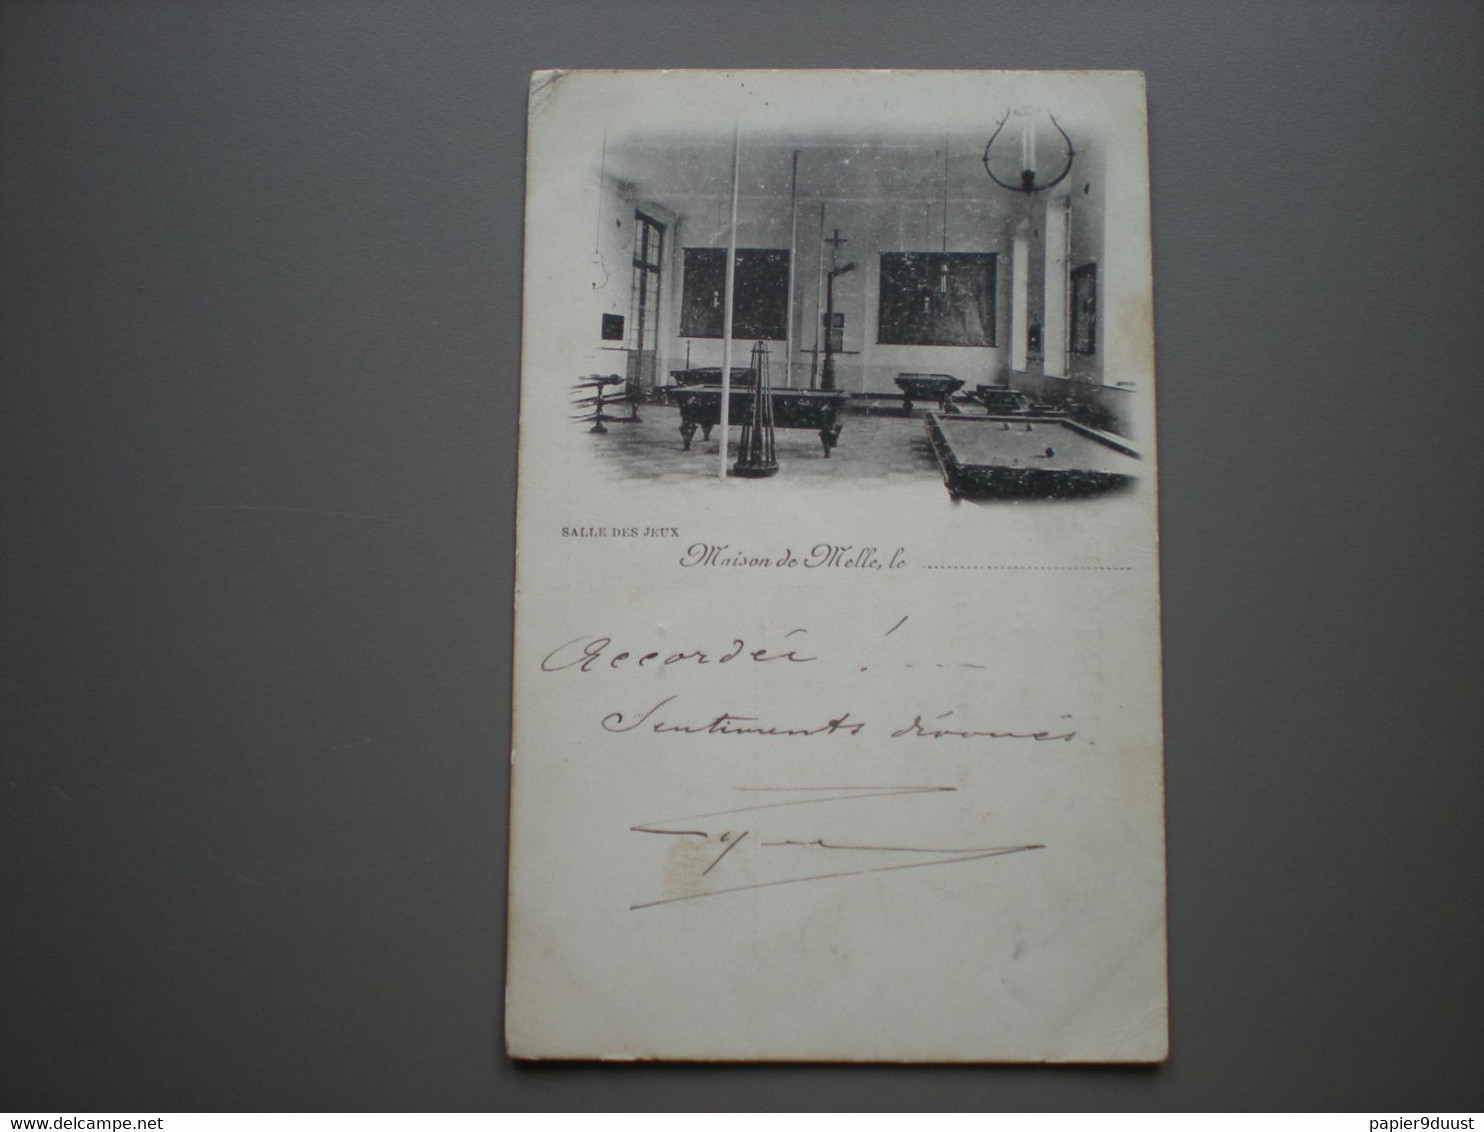 SALLE DES JEUX
Maison de Melle, le
Accordée !...
Sentiments dévoués.
papier9duust